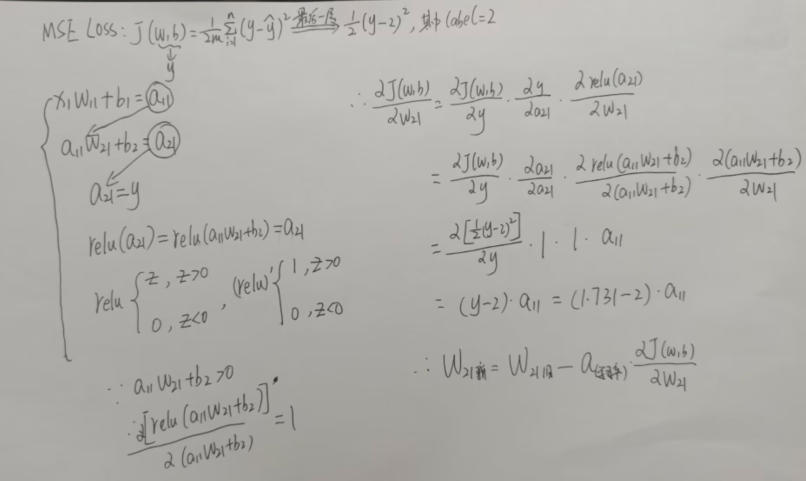 MSE Loss: J(w,b) = 1/2m n∑i=1 (y-ŷ)² 最后一层⟹ 1/2(y-2)², 其中label=2
↓
y
x₁W₁₁+b₁=a₁₁
a₁₁W₂₁+b₂=a₂₁
a₂₁=y
relu(a₂₁)=relu(a₁₁W₂₁+b₂)=a₂₁
relu { z, z>0 ; 0, z<0 , (relu)' { 1, z>0 ; 0, z<0
∵ a₁₁W₂₁+b₂>0
∴ ∂[relu(a₁₁W₂₁+b₂)]/∂(a₁₁W₂₁+b₂) = 1
∴ ∂J(w,b)/∂W₂₁ = ∂J(w,b)/∂y · ∂y/∂a₂₁ · ∂relu(a₂₁)/∂W₂₁
= ∂J(w,b)/∂y · ∂a₂₁/∂a₂₁ · ∂relu(a₁₁W₂₁+b₂)/∂(a₁₁W₂₁+b₂) · ∂(a₁₁W₂₁+b₂)/∂W₂₁
= ∂[1/2(y-2)²]/∂y · 1 · 1 · a₁₁
= (y-2)·a₁₁ = (1.731-2)·a₁₁
∴ W₂₁新 = W₂₁旧 - a · ∂J(w,b)/∂W₂₁